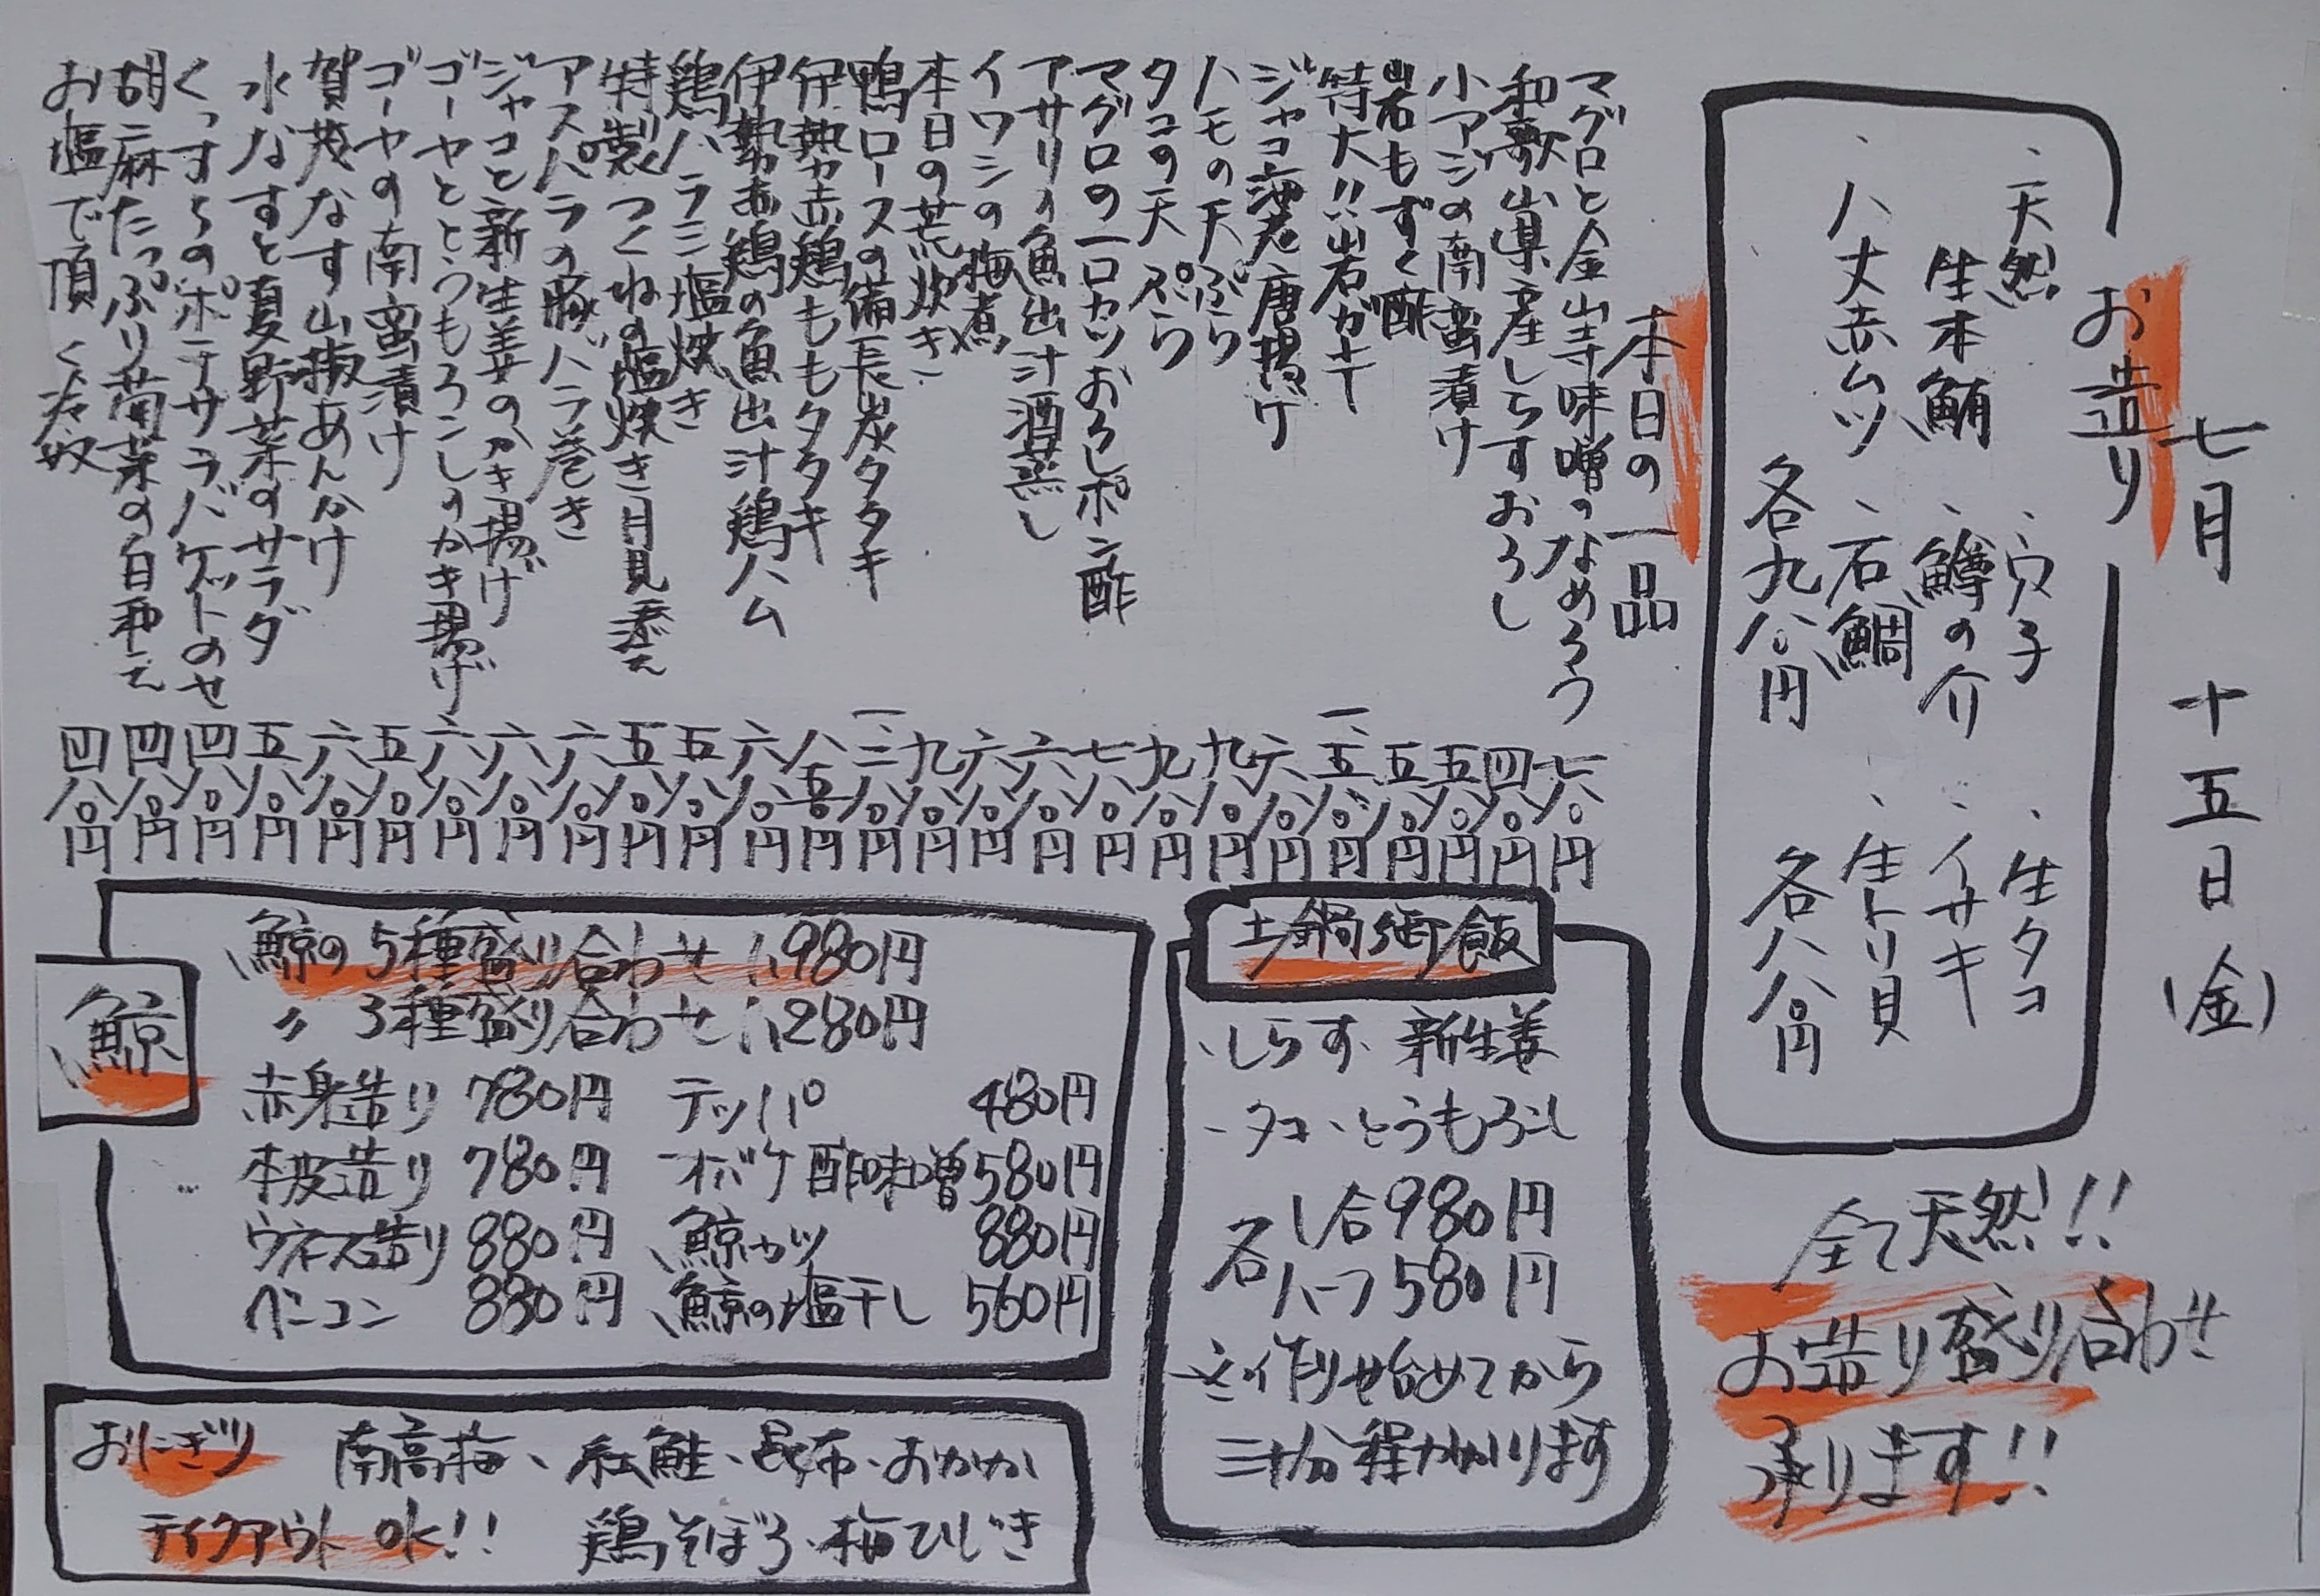 七月 十五日 (金)
お造り
、天然 、穴子 、生タコ
生本鮪 、鱒の介 、イサキ
、八丈赤ムツ 、石鯛 、生トリ貝
各九八〇円 各八八〇円
全て天然!!
お造り盛り合わせ
承ります!!
本日の一品
マグロと金山寺味噌のなめろう 七八〇円
和歌山県産しらすおろし 四八〇円
小アジの南蛮漬け 五八〇円
岩もずく酢 五八〇円
特大!!岩ガキ 一、五八〇円
ジャコ海老唐揚げ 六八〇円
ハモの天ぷら 九八〇円
タコの天ぷら 九八〇円
マグロの一口カツおろしポン酢 七八〇円
アサリの魚出汁酒蒸し 六八〇円
イワシの梅煮 六八〇円
本日の荒炊き 九八〇円
鴨ロースの備長炭タタキ 一、二八〇円
伊勢赤鶏ももタタキ 八五〇円
伊勢赤鶏の魚出汁鶏ハム 六八〇円
鶏ハラミ塩焼き 五八〇円
特製つくねの塩焼き月見添え 五八〇円
アスパラの豚バラ巻き 六八〇円
ジャコと新生姜のかき揚げ 六八〇円
ゴーヤととうもろこしのかき揚げ 六八〇円
ゴーヤの南蛮漬け 五八〇円
賀茂なす山椒あんかけ 六八〇円
水なすと夏野菜のサラダ 五八〇円
くっすらのポテサラバゲットのせ 四八〇円
胡麻たっぷり菊菜の白和え 四八〇円
お塩で頂く冷奴 四八〇円
土鍋御飯
、しらす、新生姜
、タコ、とうもろこし
各1合980円
ハーフ580円
※作り始めてから
三十分程かかります
鯨
鯨の5種盛り合わせ 1,980円
〃 3種盛り合わせ 1,280円
赤身造り 780円 テッパ 480円
本皮造り 780円 オバケ酢味噌 580円
ウネス造り 880円 鯨カツ 880円
ベーコン 880円 鯨の塩干し 560円
おにぎり 南高梅、紅鮭、昆布、おかか
テイクアウトOK!! 鶏そぼろ、梅ひじき